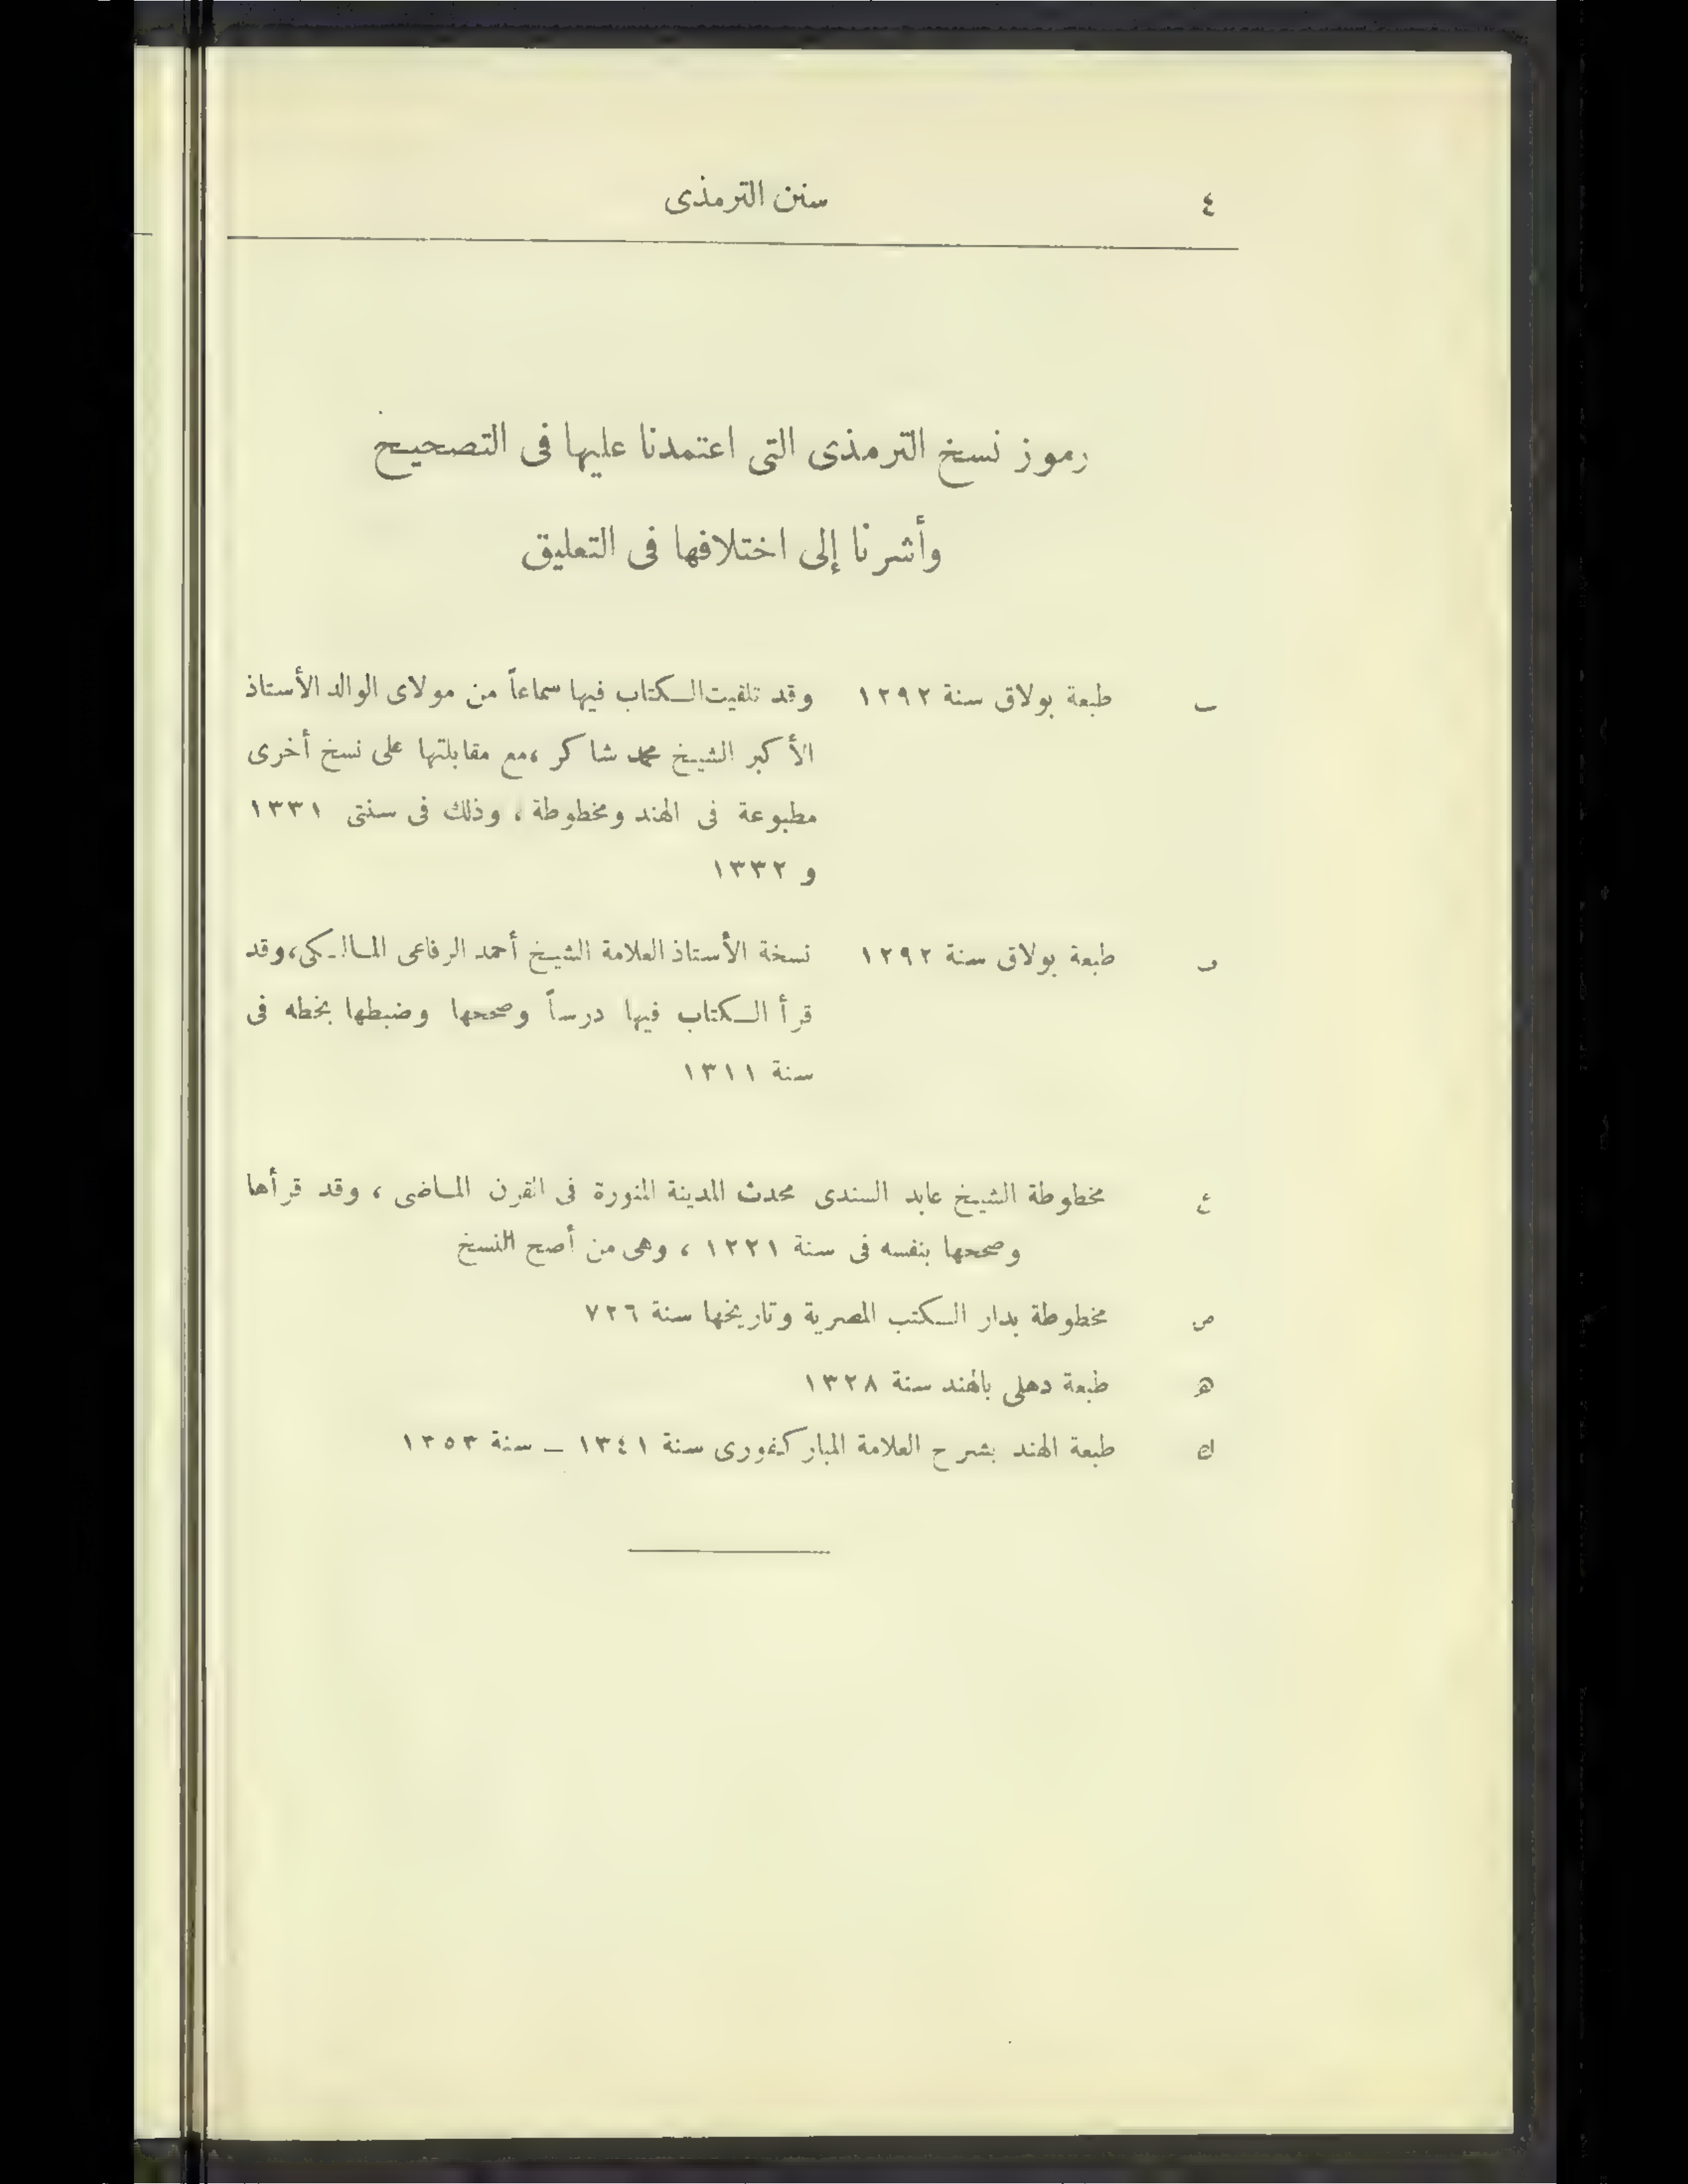 ٤
سنن الترمذى
رموز نسخ الترمذى التى اعتمدنا عليها فى التصحيح
وأشرنا إلى اختلافها فى التعليق
طبعة بولاق سنة ١٢٩٢ وقد تلقيت الكتاب فيها سماعاً من مولاى الوالد الأستاذ
الأكبر الشيخ محمد شاكر ، مع مقابلتها على نسخ أخرى
مطبوعة فى الهند ومخطوطة ، وذلك فى سنتى ١٣٣١
و ١٣٣٢
طبعة بولاق سنة ١٢٩٢ نسخة الأستاذ العلامة الشيخ أحمد الرفاعى المالكى ، وقد
قرأ الكتاب فيها درساً وصححها وضبطها بخطه فى
سنة ١٣١١
ع مخطوطة الشيخ عابد السندى محدث المدينة المنورة فى القرن الماضى ، وقد قرأها
وصححها بنفسه فى سنة ١٢٢١ ، وهى من أصح النسخ
مخطوطة بدار الكتب المصرية وتاريخها سنة ٧٢٦
ه طبعة دهلى بالهند سنة ١٣٢٨
ك طبعة الهند بشرح العلامة المباركفورى سنة ١٣٤١ – سنة ١٣٥٣